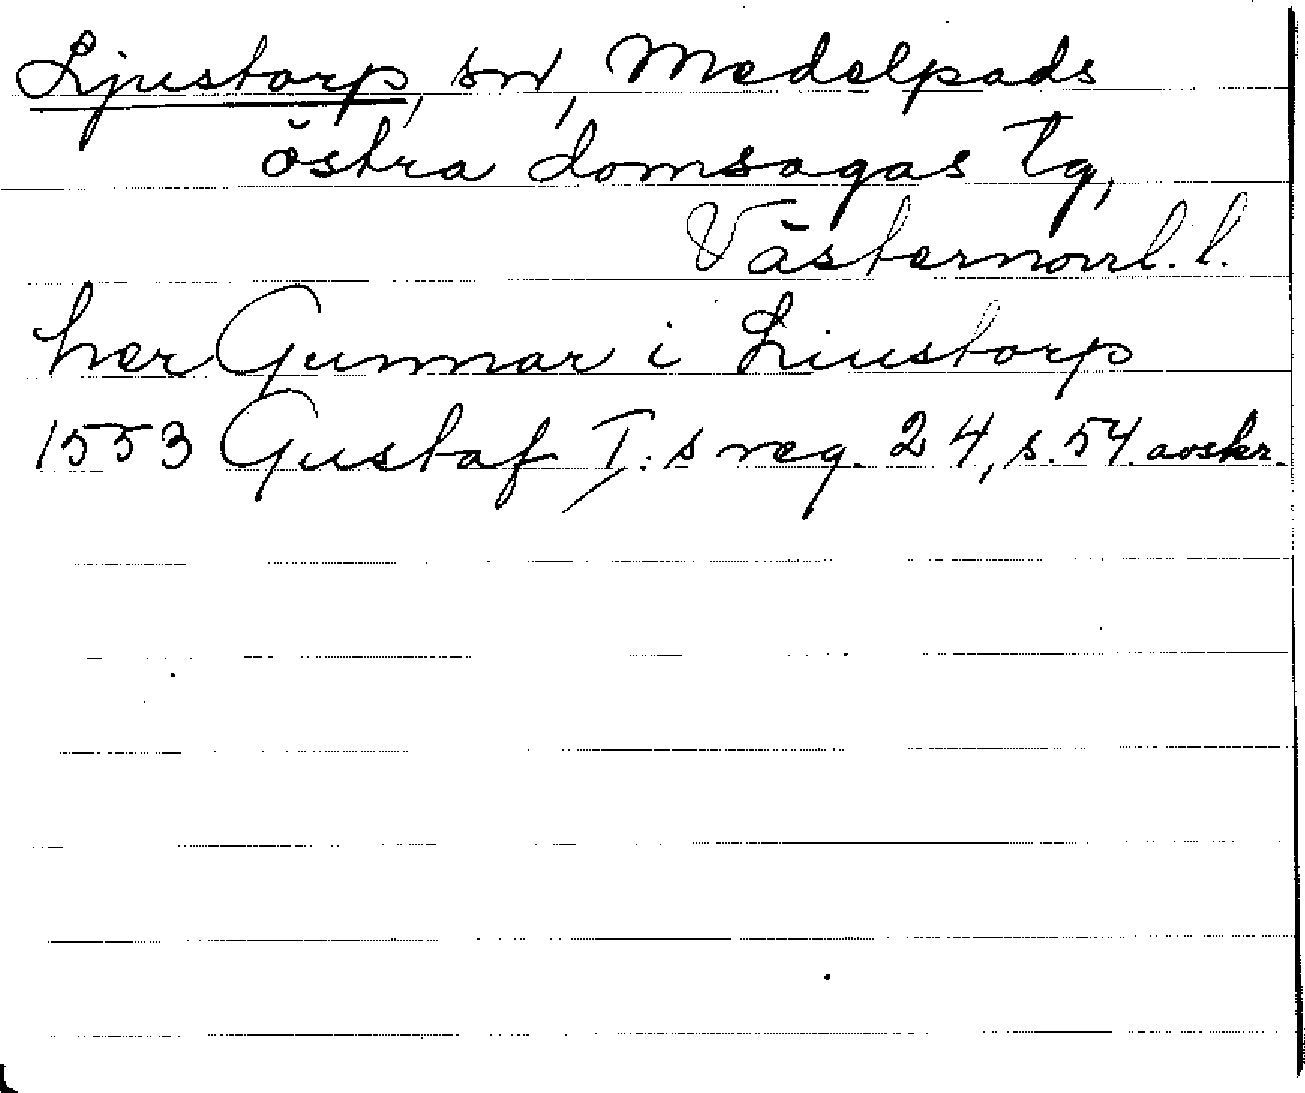 Ljustorp, sn, Medelpads
östra domsagas tg,
Västernorrl. l.
her Gunnar i Liustorp
1553 Gustaf I:s reg. 24, s. 54. avskr.